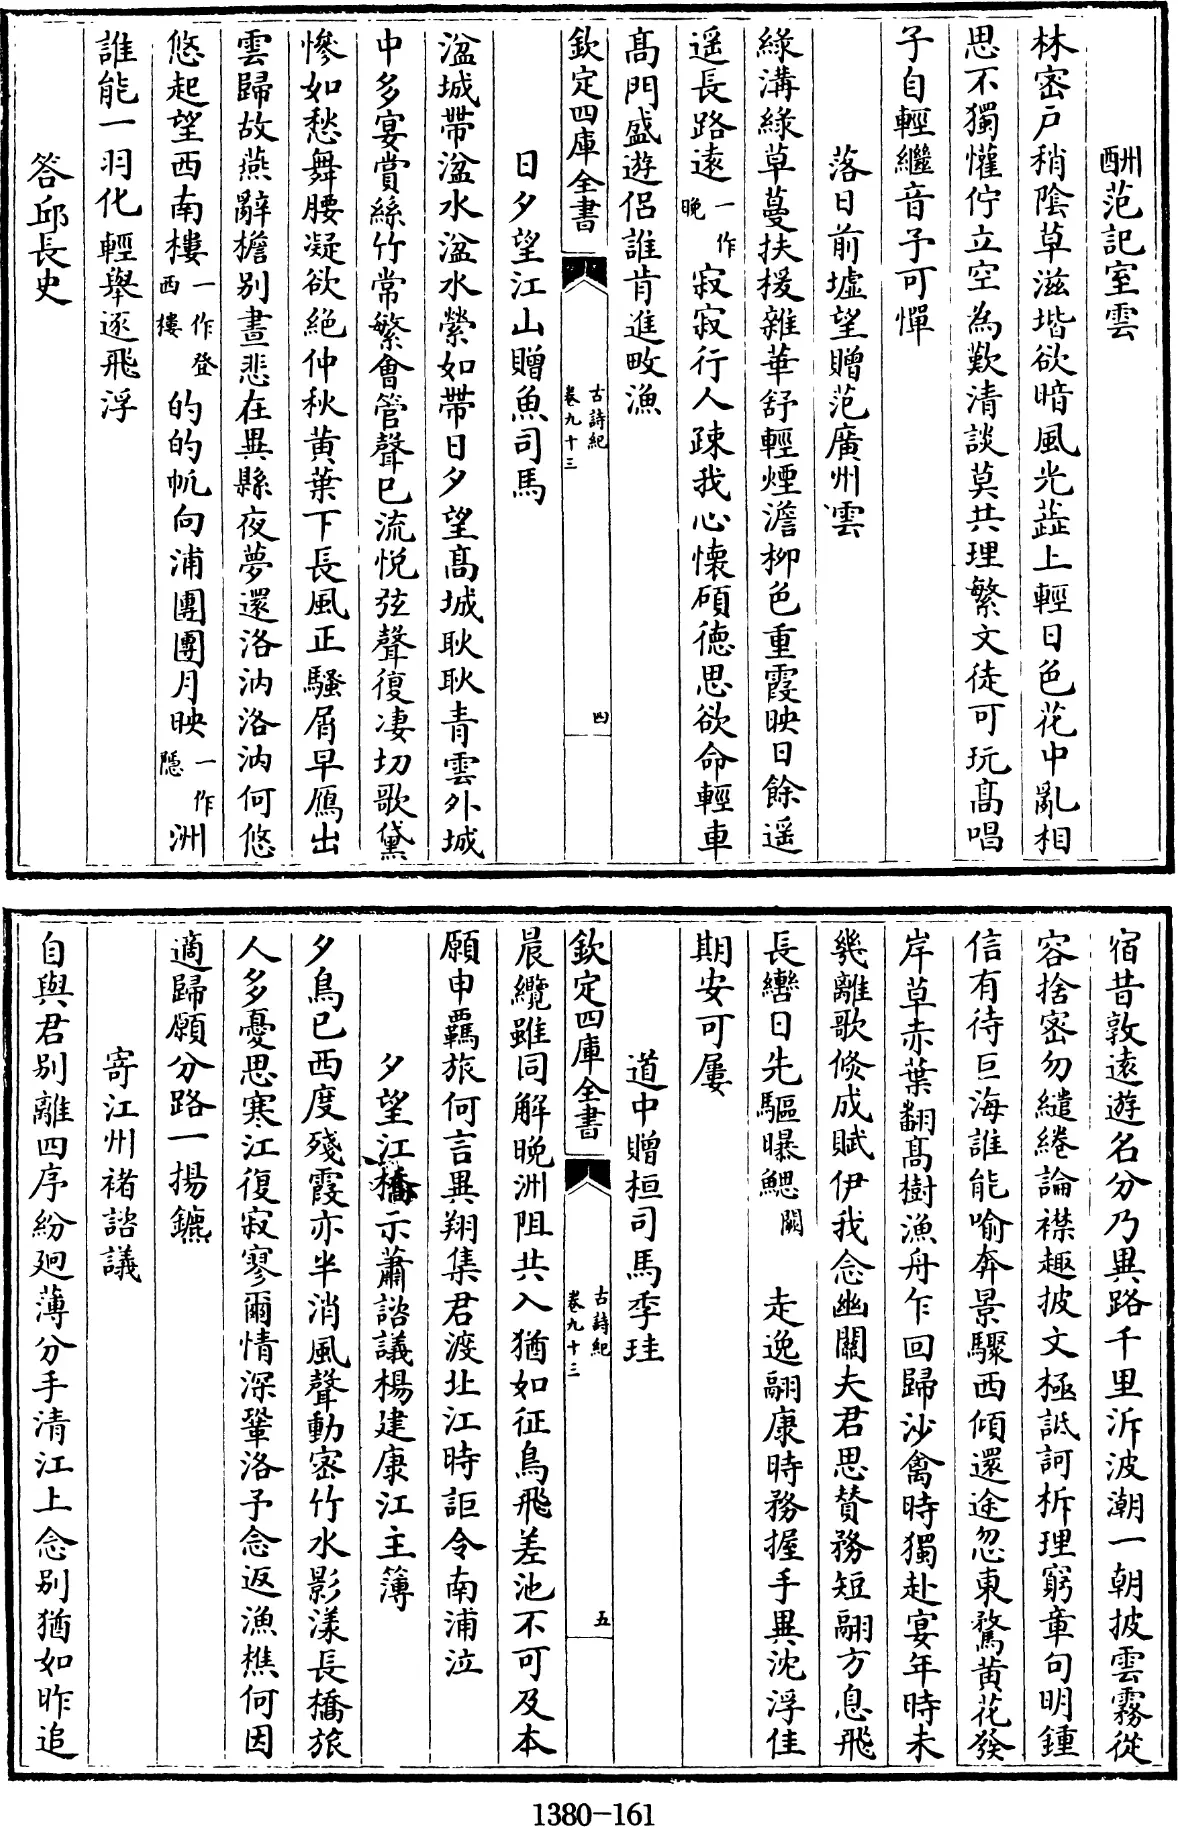 酬范記室雲
林密戶稍陰草滋堦欲暗風光蘂上輕日色花中亂相
思不獨懽佇立空為歎清談莫共理繁文徒可玩髙唱
子自輕繼音予可憚
落日前墟望贈范廣州雲
綠溝綠草蔓扶援雜華舒輕煙澹栁色重霞映日餘遥
遥長路遠一作晚寂寂行人踈我心懷碩徳思欲命輕車
髙門盛遊侶誰肯進畋漁
欽定四庫全書
古詩紀
卷九十三
四
日夕望江山贈魚司馬
湓城帶湓水湓水縈如帶日夕望髙城耿耿青雲外城
中多宴賞絲竹常繁會管聲已流悦弦聲復凄切歌黛
慘如愁舞腰凝欲絶仲秋黄葉下長風正騷屑早鴈出
雲歸故燕辭檐别晝悲在異縣夜夢還洛汭洛汭何悠
悠起望西南樓一作登西樓的的帆向浦團團月映一作隱洲
誰能一羽化輕舉逐飛浮
答邱長史
宿昔敦遠遊名分乃異路千里泝波潮一朝披雲霧從
容捨密勿繾綣論襟趣披文極詆訶析理窮章句明鍾
信有待巨海誰能喻奔景驟西傾還途忽東騖黄花發
岸草赤葉翻髙樹漁舟乍回歸沙禽時獨赴宴年時未
幾離歌倐成賦伊我念幽闗夫君思賛務短翮方息飛
長轡日先驅曝鰓闕走逸翮康時務握手異沈浮佳
期安可屢
道中贈桓司馬季珪
欽定四庫全書
古詩紀
卷九十三
五
晨纜雖同解晩洲阻共入猶如征鳥飛差池不可及本
願申羈旅何言異翔集君渡北江時詎令南浦泣
夕望江橋示蕭諮議楊建康江主簿
夕鳥已西度殘霞亦半消風聲動密竹水影漾長橋旅
人多憂思寒江復寂寥爾情深鞏洛予念返漁樵何因
適歸願分路一揚鑣
寄江州褚諮議
自與君别離四序紛廻薄分手清江上念别猶如昨追
1380-161